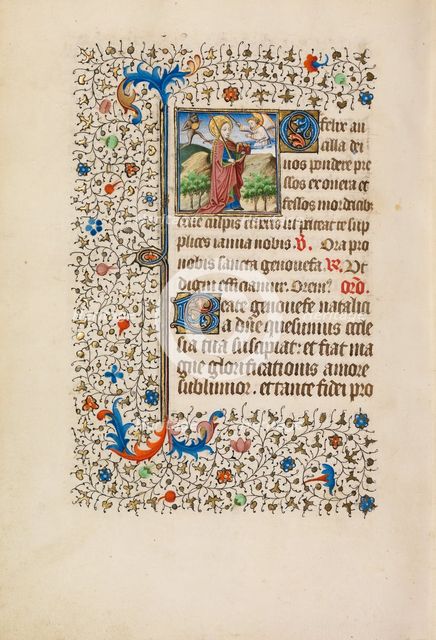 O felix an
cilla dei
nos pondere pre
ssos exonera et
fessos mordicib
ut pateat te sup
plices ianua nobis. V. Ora pro
nobis sancta genouefa. R. Ut
digni efficiamur. Orem9 oro.
Beate genouefe natalici
a dne quesumus eccle
sia tua suscipiat: et fiat ma
gne glorificationis amore
sublimior. et tante fidei pro